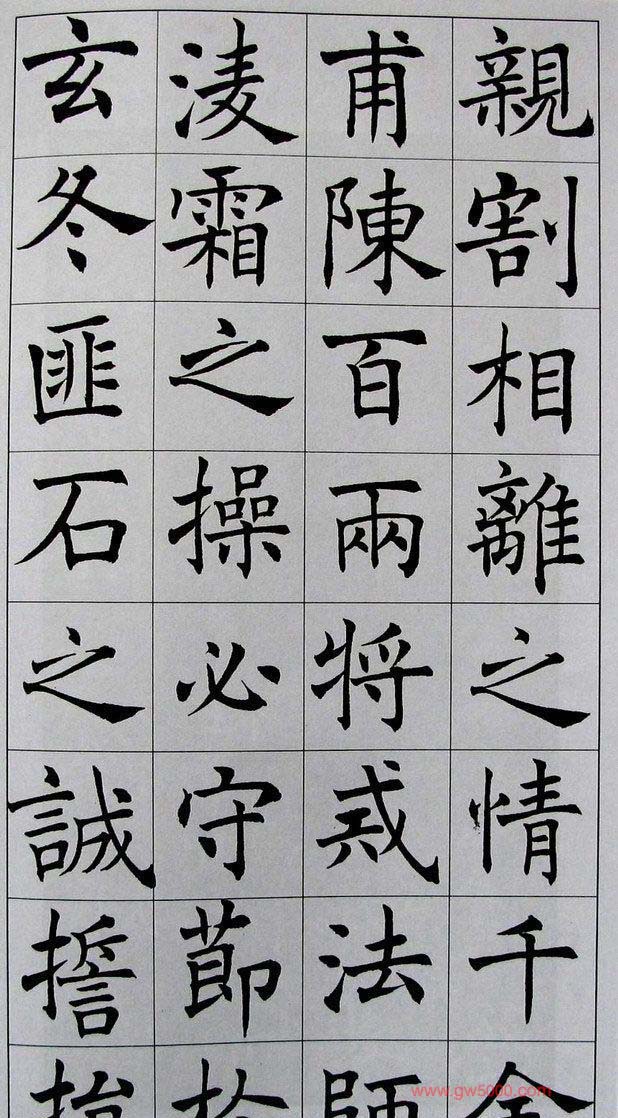 親割相離之情千金
甫陳百兩將戒法師
淩霜之操必守節於
玄冬匪石之誠誓
www.gw5000.com